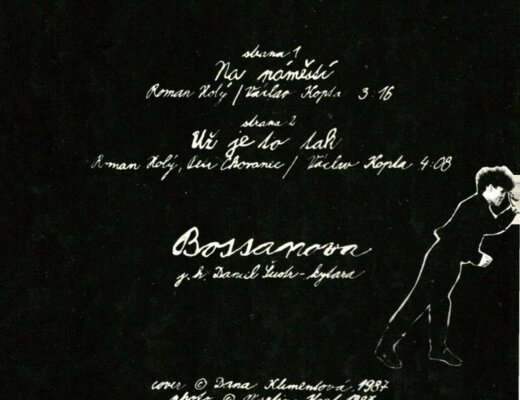 strana 1
Na náměstí
Roman Holý / Václav Kopta 3:16
strana 2
Už je to tak
Roman Holý, Petr Chovanec / Václav Kopta 4:08
Bossanova
j. h. Daniel - kytara
cover © Dana Klimentová 1987
photo ©